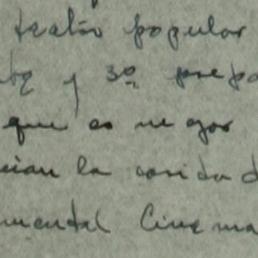 teatro popular
y 3º prepa
que es mejor
la corrida d
mental Cinema